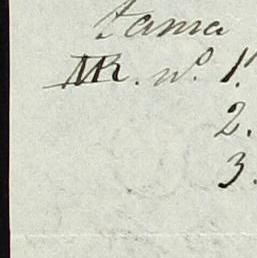 tama
MR. nº. 1.
2.
3.